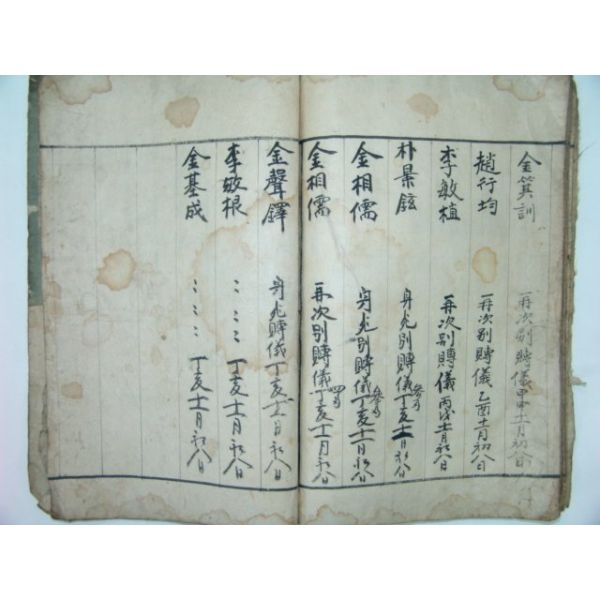 金箕訓 再次別賻儀甲申十一月初八日
趙行均 再次別賻儀乙酉十一月初八日
李敏植 再次別賻儀丙戌十一月初八日
朴景鉉 身死別賻儀丁亥十一月初八日
金相儒 身死別賻儀丁亥十一月初八日
金相儒 再次別賻儀丁亥十一月初八日
金聲鐸 身死賻儀丁亥十一月初八日
李敏根 〻〻〻 丁亥十一月初八日
金基成 〻〻〻 丁亥十一月初八日